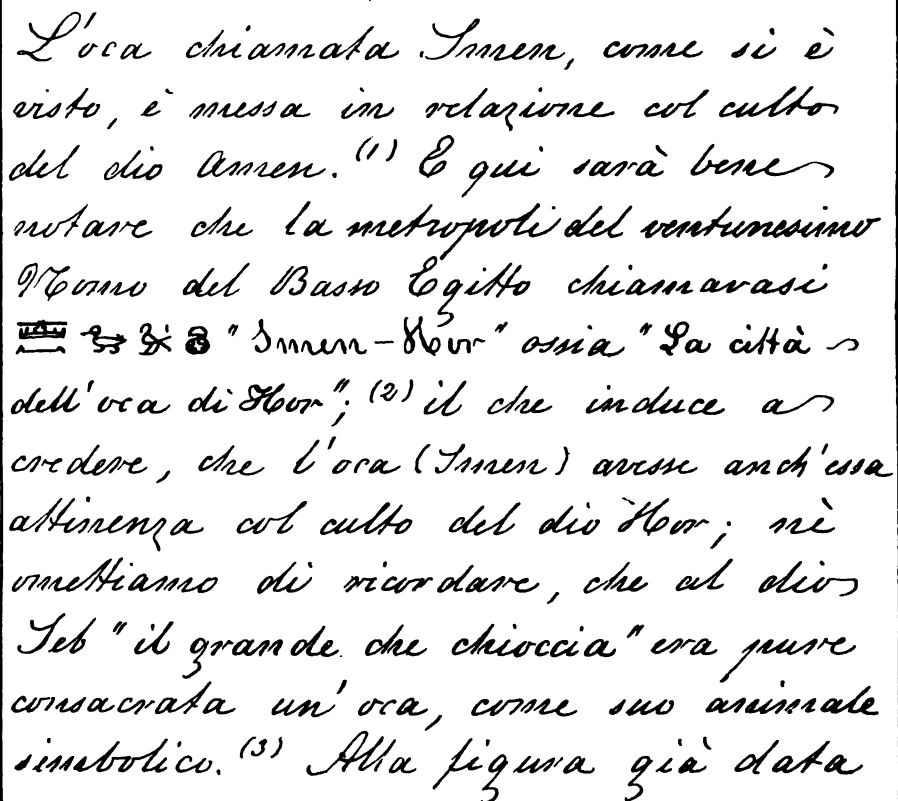 L'oca chiamata Smen, come si è
visto, è messa in relazione col culto
del dio Amen.(1) E qui sarà bene
notare che la metropoli del ventunesimo
Nomo del Basso Egitto chiamavasi
"Smen-Hor" ossia "La città
dell'oca di Hor";(2) il che induce a
credere, che l'oca (Smen) avesse anch'essa
attinenza col culto del dio Hor; nè
omettiamo di ricordare, che al dio
Seb "il grande che chioccia" era pure
consacrata un'oca, come suo animale
simbolico.(3) Alla figura già data